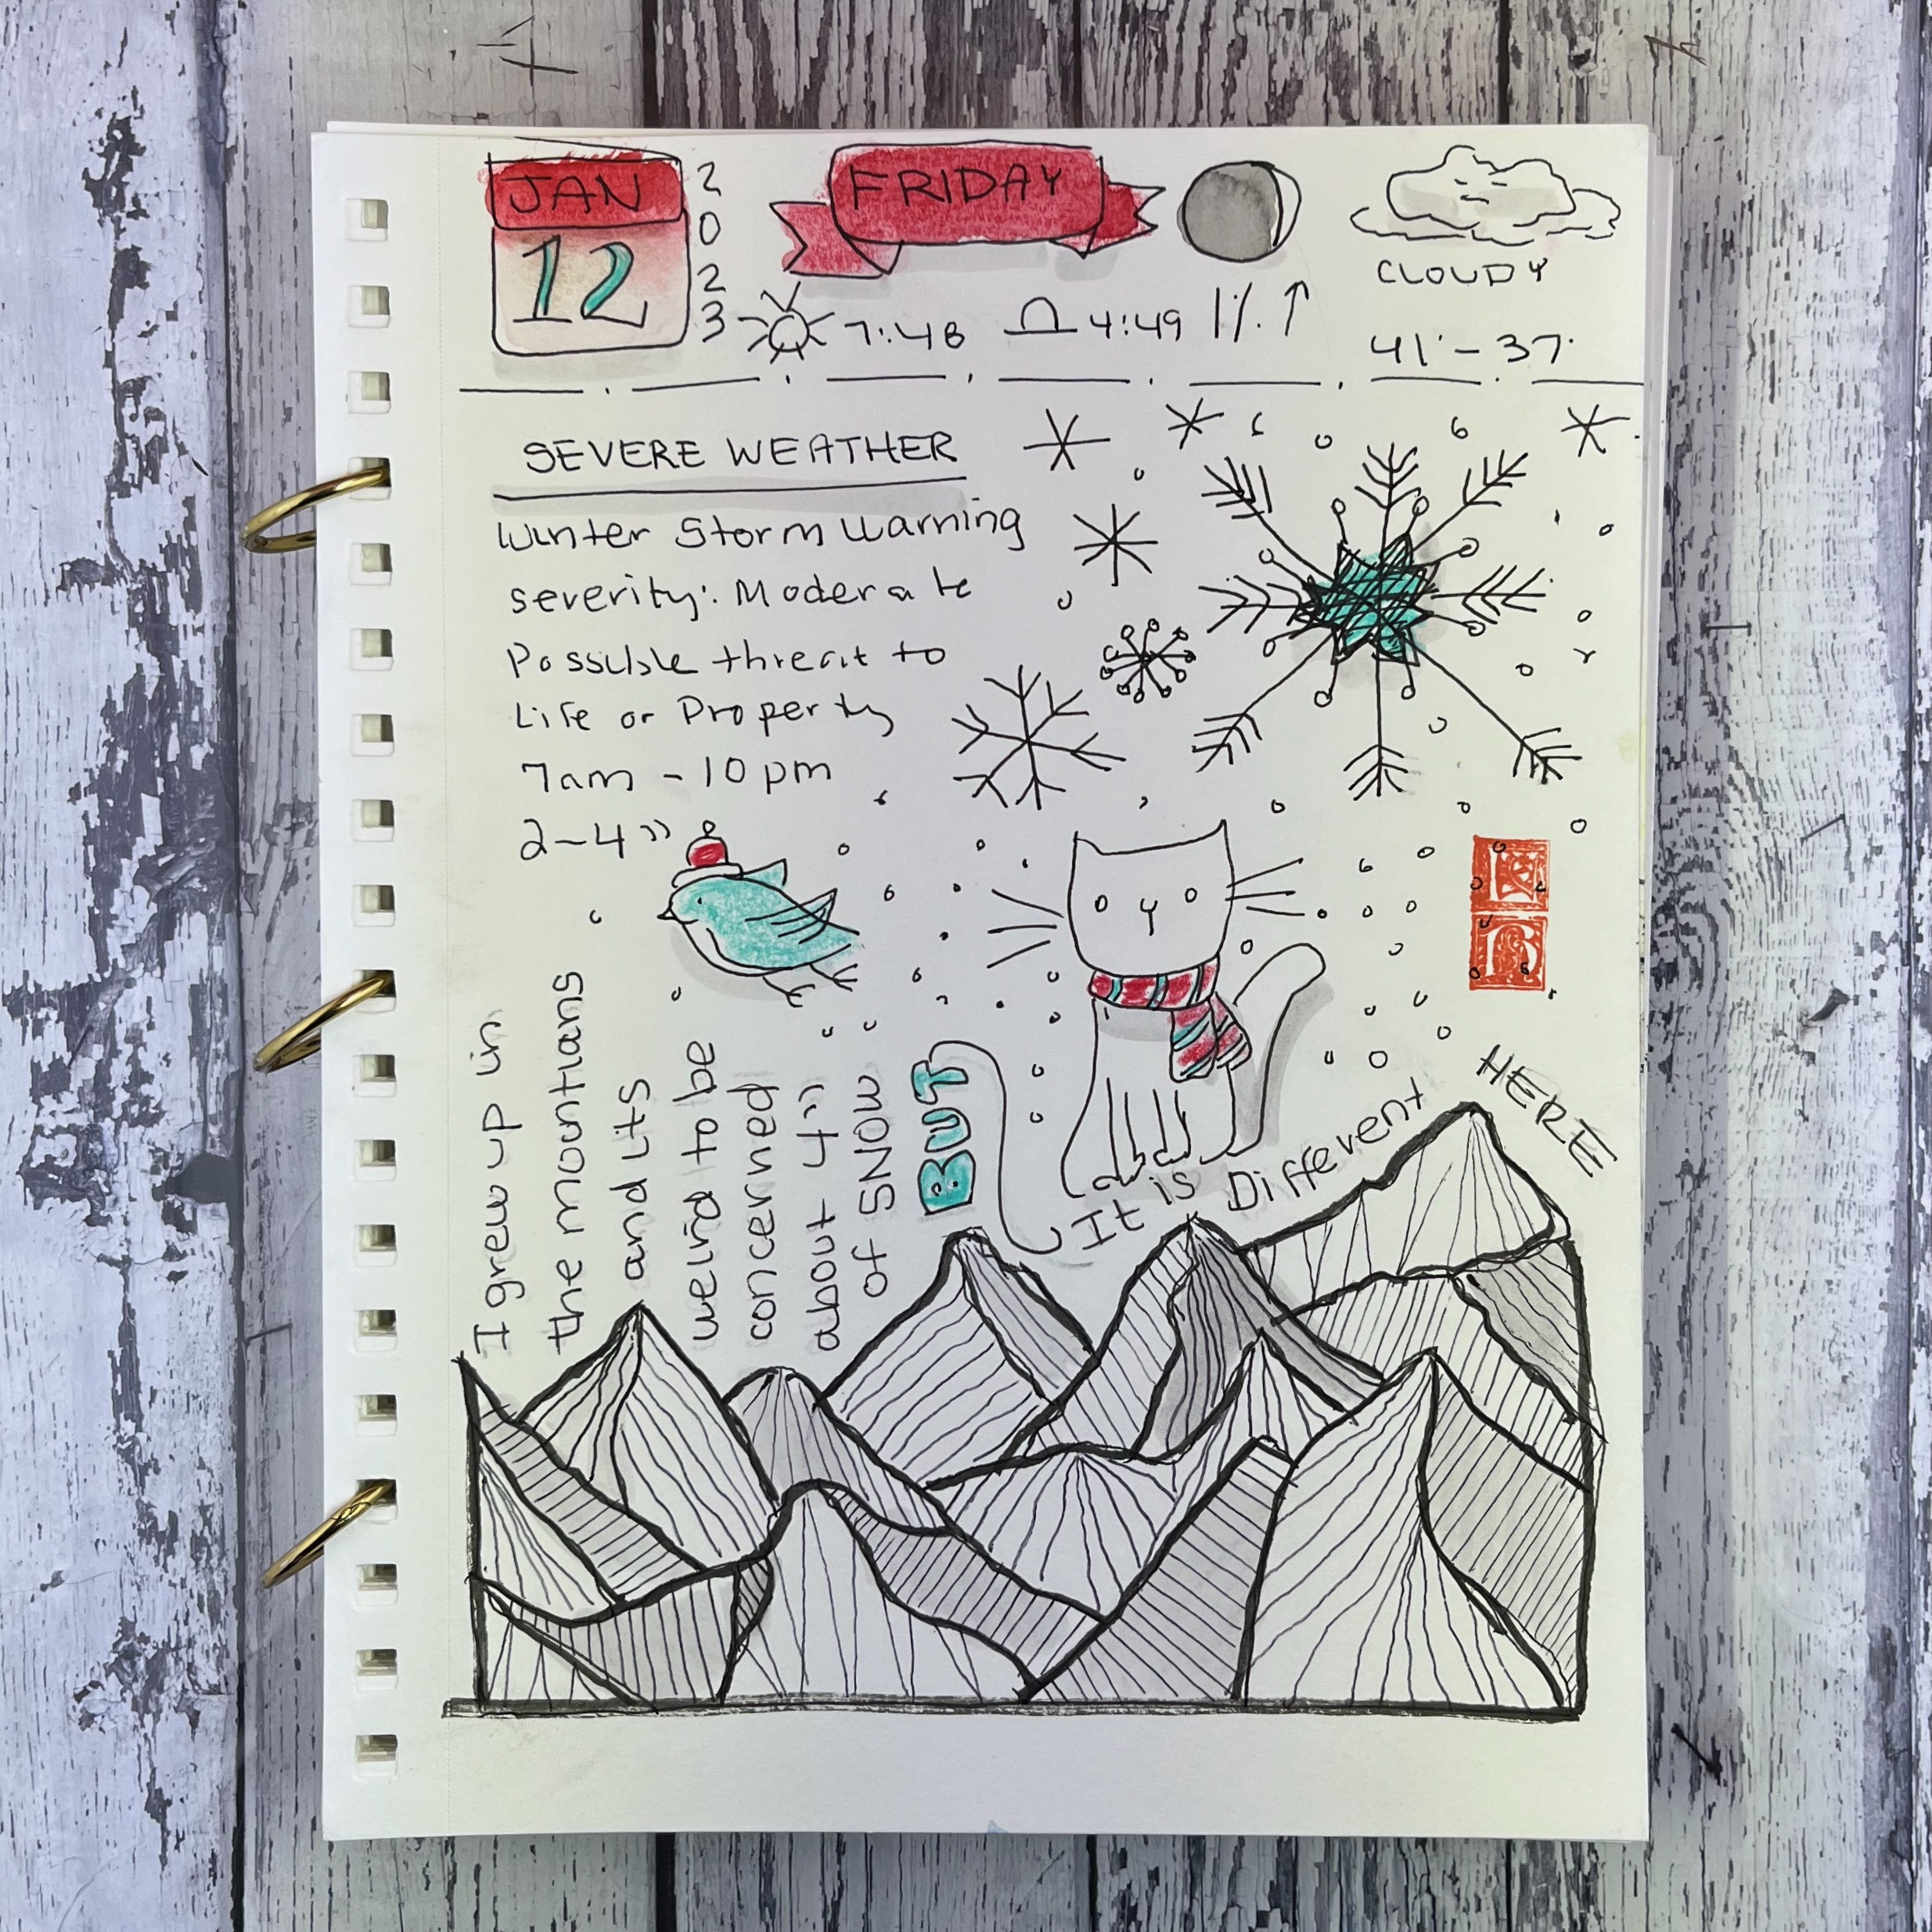 JAN
12
2023
FRIDAY
7:48
4:49
1%
CLOUDY
41°-37°
SEVERE WEATHER
Winter Storm Warning
severity: Moderate
Possible threat to
Life or Property
7am - 10pm
2-4"
I grew up in
the mountians
and its
weird to be
concerned
about 4"
of SNOW
BUT
It is Different HERE